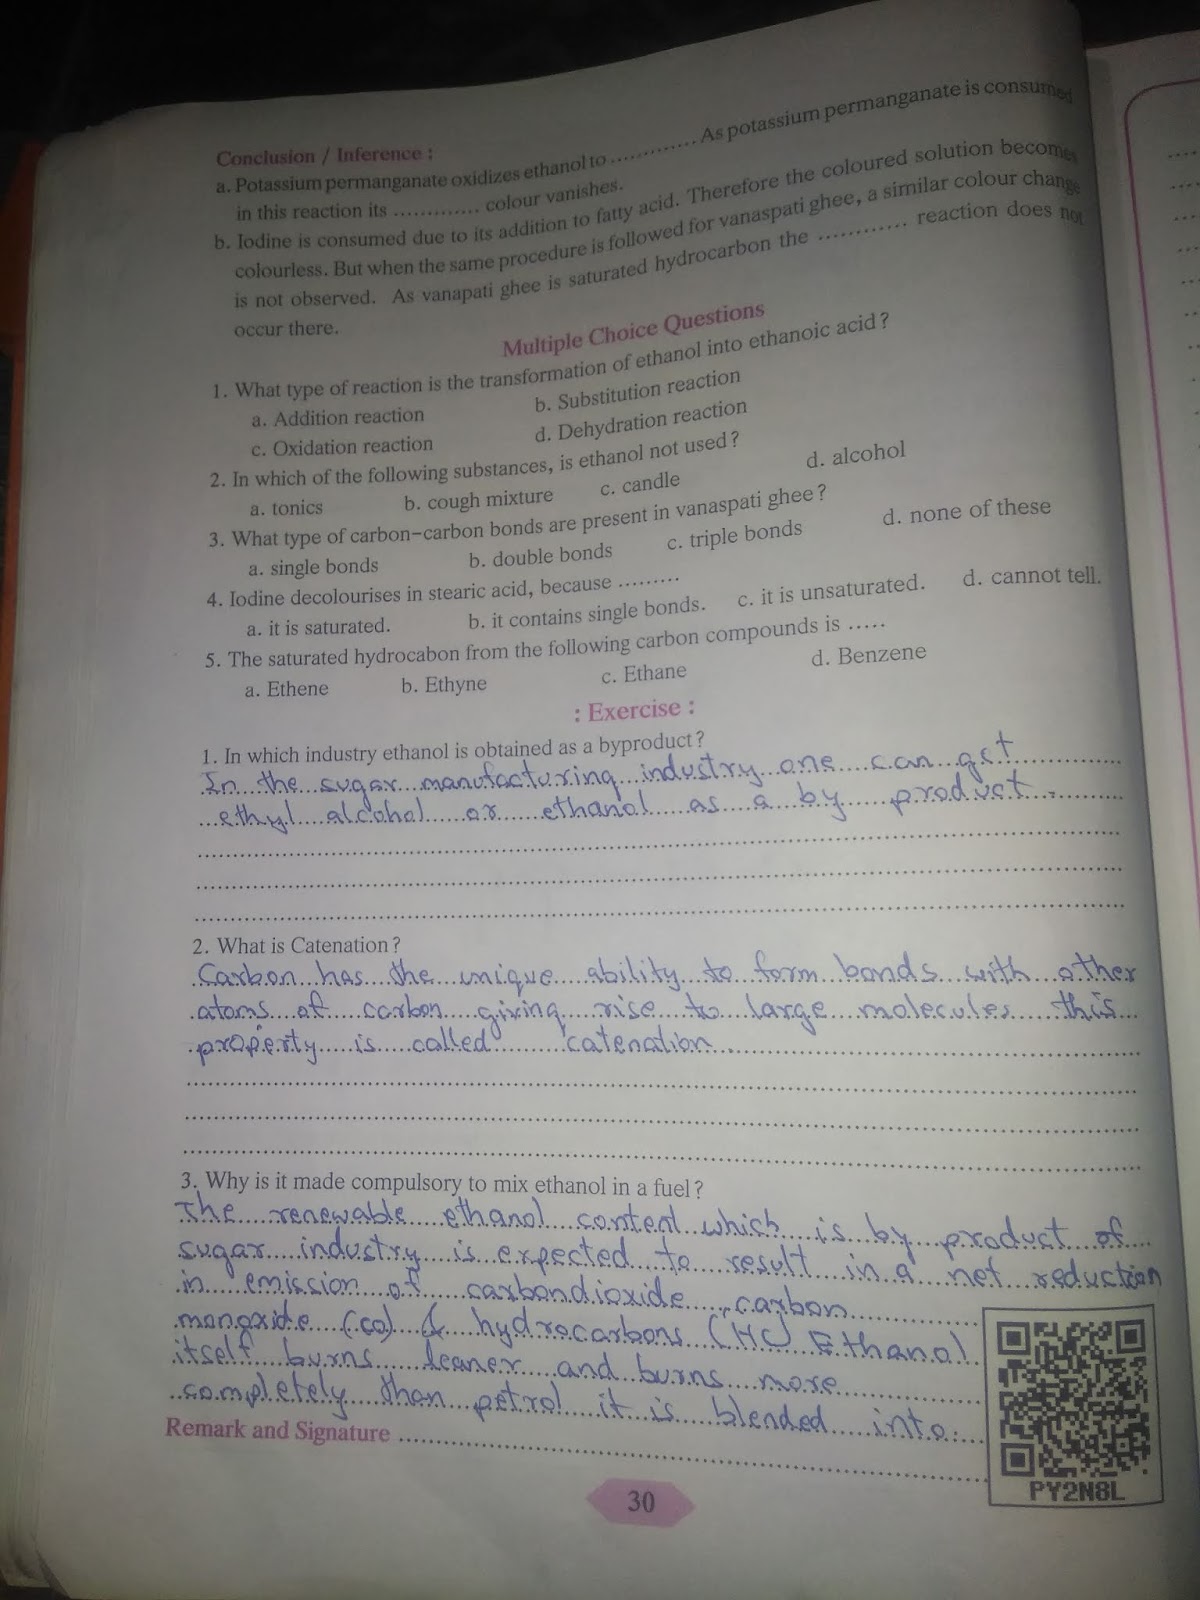 Conclusion / Inference :
a. Potassium permanganate oxidizes ethanol to ............. As potassium permanganate is consumed
in this reaction its ............. colour vanishes.
b. Iodine is consumed due to its addition to fatty acid. Therefore the coloured solution becomes
colourless. But when the same procedure is followed for vanaspati ghee, a similar colour change
is not observed. As vanapati ghee is saturated hydrocarbon the ............. reaction does not
occur there.
Multiple Choice Questions
1. What type of reaction is the transformation of ethanol into ethanoic acid?
a. Addition reaction b. Substitution reaction
c. Oxidation reaction d. Dehydration reaction
2. In which of the following substances, is ethanol not used?
a. tonics b. cough mixture c. candle d. alcohol
3. What type of carbon-carbon bonds are present in vanaspati ghee?
a. single bonds b. double bonds c. triple bonds d. none of these
4. Iodine decolourises in stearic acid, because .........
a. it is saturated. b. it contains single bonds. c. it is unsaturated. d. cannot tell.
5. The saturated hydrocabon from the following carbon compounds is .....
a. Ethene b. Ethyne c. Ethane d. Benzene
: Exercise :
1. In which industry ethanol is obtained as a byproduct?
In the sugar manufacturing industry one can get
ethyl alcohol or ethanol as a by product.
2. What is Catenation?
Carbon has the unique ability to form bonds with other
atoms of carbon giving rise to large molecules this
property is called catenation
3. Why is it made compulsory to mix ethanol in a fuel?
The renewable ethanol content which is by product of
sugar industry is expected to result in a net reduction
in emission of carbondioxide, carbon
monoxide (co) & hydrocarbons (HC) Ethanol
itself burns leaner and burns more
completely than petrol it is blended into.
Remark and Signature
30
PY2N8L